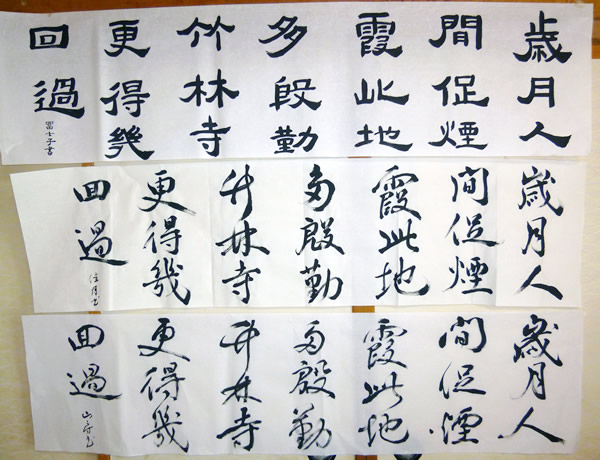 歳月人
間促煙
霞此地
多殷勤
竹林寺
更得幾
回過
冨士子書
歳月人
間促煙
霞此地
多殷勤
竹林寺
更得幾
回過
歳月人
間促煙
霞此地
多殷勤
竹林寺
更得幾
回過